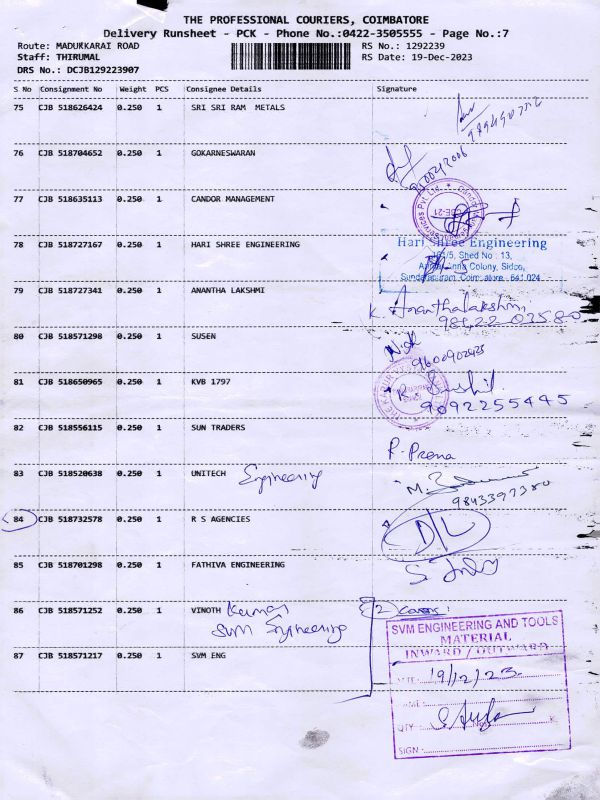 THE PROFESSIONAL COURIERS, COIMBATORE
Delivery Runsheet - PCK - Phone No.:0422-3505555 - Page No.:7
Route: MADUKKARAI ROAD RS No.: 1292239
Staff: THIRUMAL RS Date: 19-Dec-2023
DRS No.: DCJB129223907
S No Consignment No Weight PCS Consignee Details Signature
75 CJB 518626424 0.250 1 SRI SRI RAM METALS
76 CJB 518704652 0.250 1 GOKARNESWARAN
77 CJB 518635113 0.250 1 CANDOR MANAGEMENT
78 CJB 518727167 0.250 1 HARI SHREE ENGINEERING Hari Shree Engineering
Shed No : 13,
Anna Colony, Sidco,
79 CJB 518727341 0.250 1 ANANTHA LAKSHMI
K. Ananthalakshmi
80 CJB 518571298 0.250 1 SUSEN
9600902423
81 CJB 518650965 0.250 1 KVB 1797
9092255445
82 CJB 518556115 0.250 1 SUN TRADERS
P. Prema
83 CJB 518520638 0.250 1 UNITECH Engineering
9843397380
84 CJB 518732578 0.250 1 R S AGENCIES D/L
85 CJB 518701298 0.250 1 FATHIVA ENGINEERING
86 CJB 518571252 0.250 1 VINOTH Kumar 2 Covers:
SVM Engineering
87 CJB 518571217 0.250 1 SVM ENG
SVM ENGINEERING AND TOOLS
MATERIAL
INWARD / OUTWARD
19/12/23
QTY
SIGN